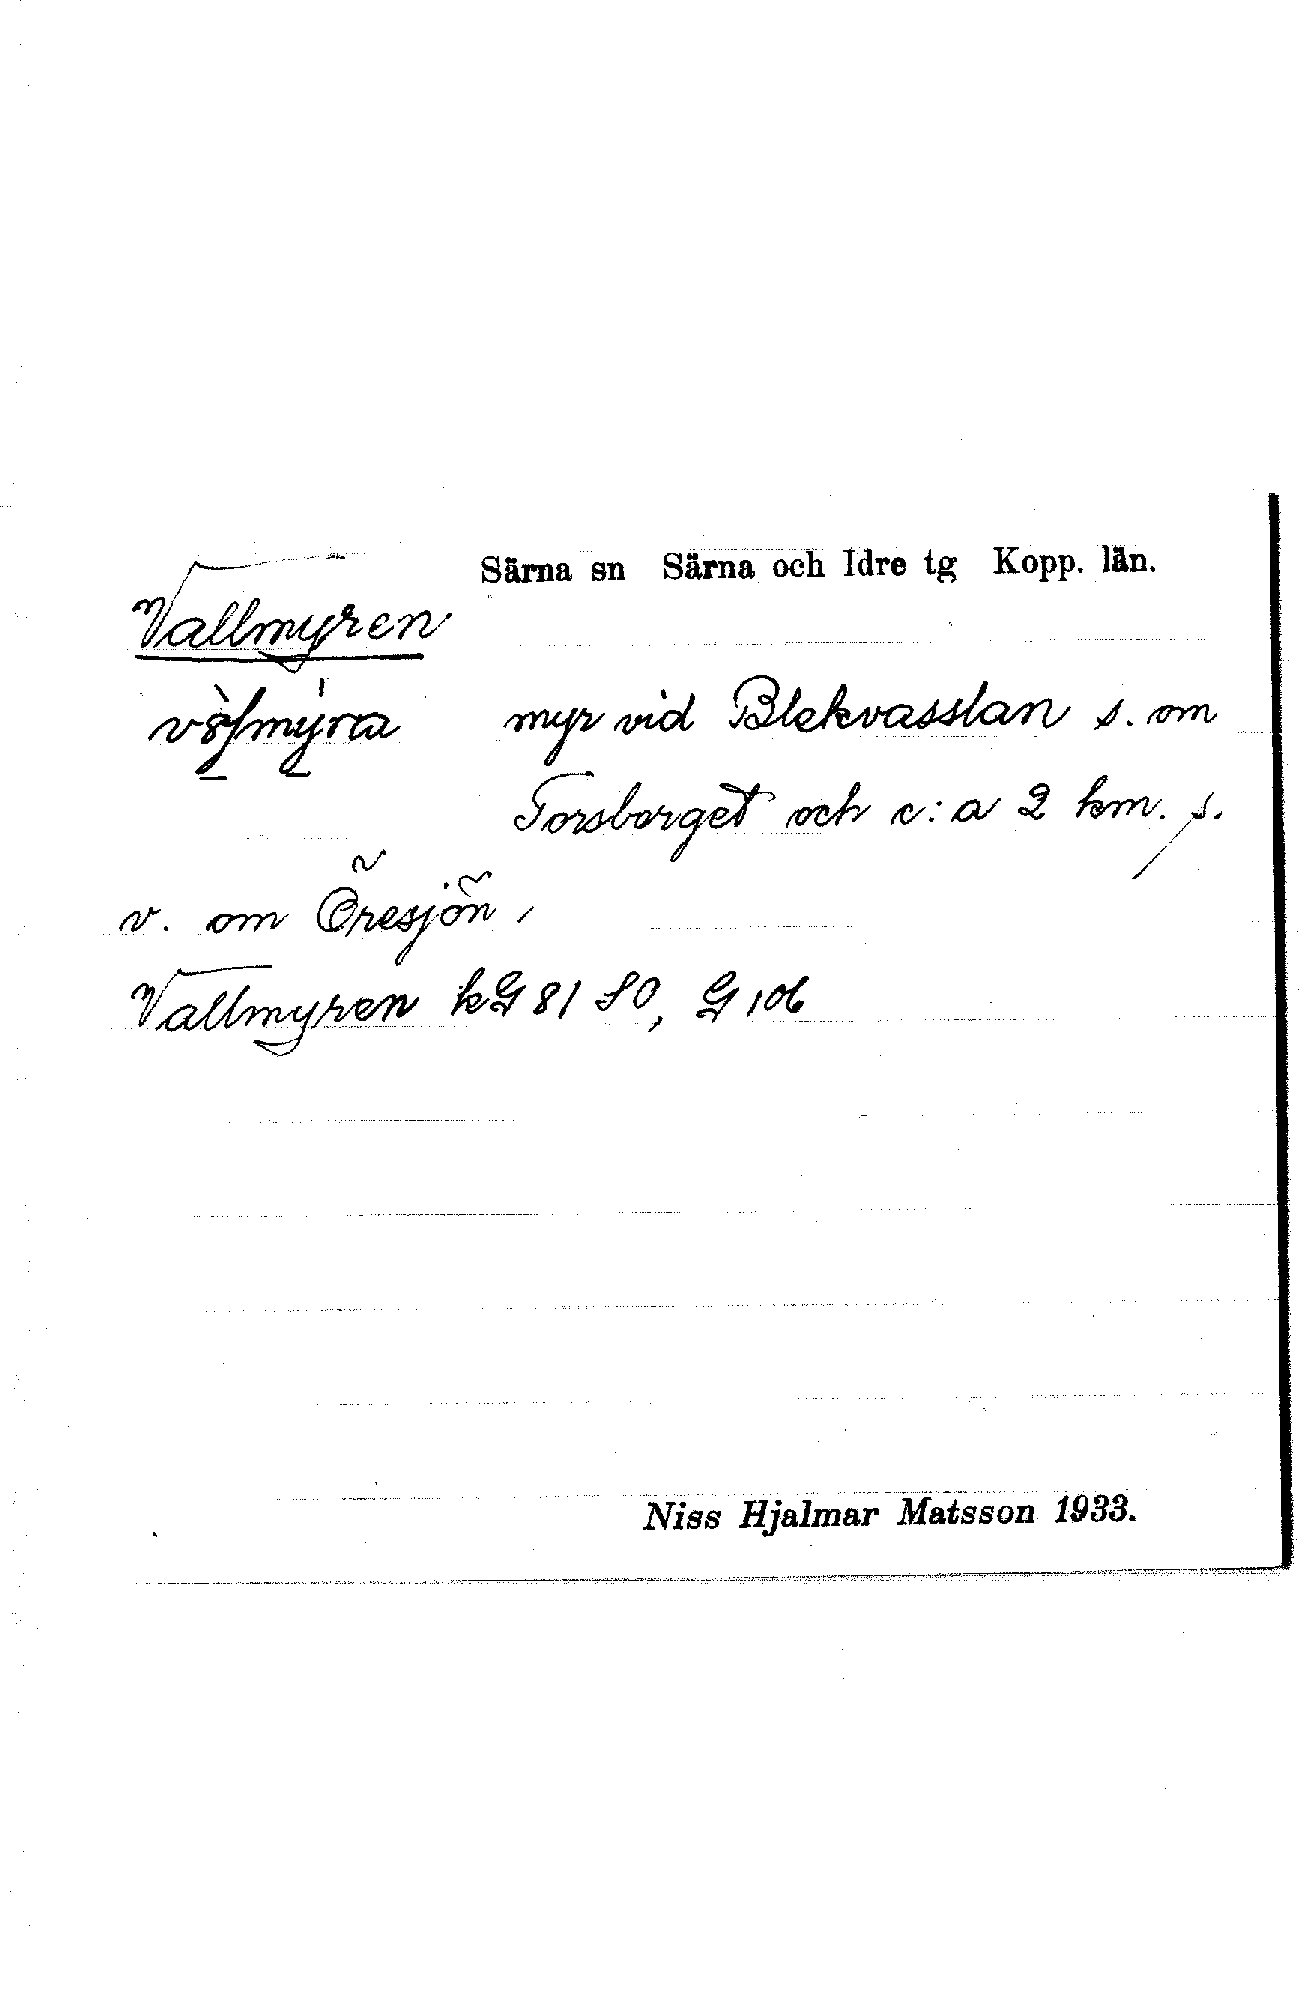 Särna sn Särna och Idre tg Kopp. län.
Vallmyren
myr vid Blekvasslan s. om
Torsborget och c:a 2 km. s.
v. om Öresjön,
Vallmyren kG 81 SO, G 106
Niss Hjalmar Matsson 1933.